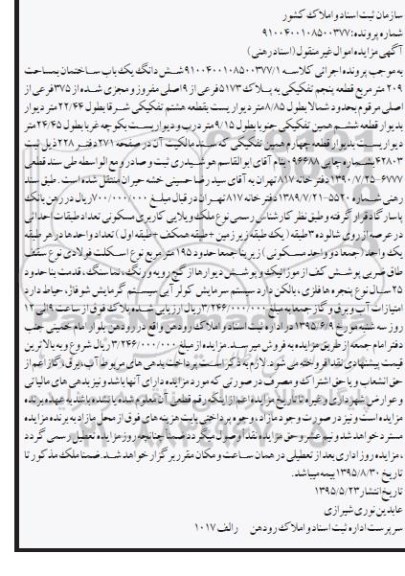 سازمان ثبت اسناد و املاک کشور
شماره پرونده: ۹۱۰۰۴۰۰۱۰۸۵۰۰۳۷۷
آگهی مزایده اموال غیر منقول (اسناد رهنی)
به موجب پرونده اجرائی کلاسه ۹۱۰۰۴۰۰۱۰۸۵۰۰۳۷۷/۱ شش دانگ یک باب ساختمان بمساحت
۲۰۹ متر مربع قطعه پنجم تفکیکی به پلاک ۵۱۷۳ فرعی از ۹ اصلی مفروز و مجزی شده از ۳۷۵ فرعی از
اصلی مرقوم بحدود شمالا بطول ۸/۸۵ متر دیواریست بقطعه هشتم تفکیکی شرقا بطول ۲۲/۴۴ متر دیوار
بدیوار قطعه ششم همین تفکیکی جنوبا بطول ۹/۱۵ متر درب و دیواریست بکوچه غربا بطول ۲۴/۴۵ متر
دیواریست بدیوار قطعه چهارم همین تفکیکی که سند مالکیت آن در صفحه ۲۷۱ دفتر ۲۲۸ ذیل ثبت
۴۲۸۰۳ بشماره چاپی ۰۹۶۶۸۸ بنام آقای ابوالقاسم هوشیدری ثبت و صادر و مع الواسطه طی سند قطعی
۶۷۷۷-۱۳۹۰/۷/۲۵ دفترخانه ۸۱۷ تهران به آقای سید رضا حسینی خشه حیران منتقل شده است. طبق سند
رهنی شماره ۵۵۲۰-۱۳۸۹/۷/۲۱ دفترخانه ۸۱۷ تهران در قبال مبلغ ۷۰۰/۰۰۰/۰۰۰ ریال در رهن بانک
پاسارگاد قرار گرفته و طبق نظر کارشناس رسمی نوع ملک ویلایی کاربری مسکونی تعداد طبقات احداثی
در عرصه از روی شالوده ۳ طبقه (یک طبقه زیرزمین + طبقه همکف + طبقه اول) تعداد واحدها در هر طبقه
یک واحد (جمعا دو واحد مسکونی) زیر بنا جمعا حدود ۱۹۵ متر مربع نوع اسکلت فولادی نوع سقف
طاق ضربی پوشش کف از موزائیک و پوشش دیوارها از گچ رویه و رنگ، نما سنگ، قدمت بنا حدود
۲۵ سال نوع پنجره ها فلزی، بالکن دارد سیستم سرمایش کولر آبی سیستم گرمایش شوفاژ، حیاط دارد
امتیازات آب و برق و گاز جمعا به مبلغ ۳/۲۴۶/۰۰۰/۰۰۰ ریال ارزیابی شده پلاک فوق از ساعت ۹ الی ۱۲
روز سه شنبه مورخ ۱۳۹۵/۶/۹ در اداره ثبت اسناد و املاک رودهن واقع در رودهن بلوار امام خمینی جنب
دفتر امام جمعه از طریق مزایده به فروش میرسد. مزایده از مبلغ ۳/۲۴۶/۰۰۰/۰۰۰ ریال شروع و به بالاترین
قیمت پیشنهادی نقدا فروخته می شود. لازم به ذکر است پرداخت بدهی های مربوط به آب، برق، گاز اعم از
حق انشعاب و یا حق اشتراک و مصرف در صورتی که مورد مزایده دارای آنها باشد و نیز بدهی های مالیاتی
و عوارض شهرداری و غیره تا تاریخ مزایده اعم از اینکه رقم قطعی آن معلوم شده یا نشده باشد به عهده برنده
مزایده است و نیز در صورت وجود مازاد، وجوه پرداختی بابت هزینه های فوق از محل مازاد به برنده مزایده
مسترد خواهد شد و نیم عشر و حق مزایده نقدا وصول میگردد ضمنا چنانچه روز مزایده تعطیل رسمی گردد
، مزایده روز اداری بعد از تعطیلی در همان ساعت و مکان مقرر برگزار خواهد شد. ضمنا ملک مذکور تا
تاریخ ۱۳۹۵/۸/۳۰ بیمه میباشد.
تاریخ انتشار ۱۳۹۵/۵/۲۳
عابدین نوری شیرازی
سرپرست اداره ثبت اسناد و املاک رودهن رالف ۱۰۱۷